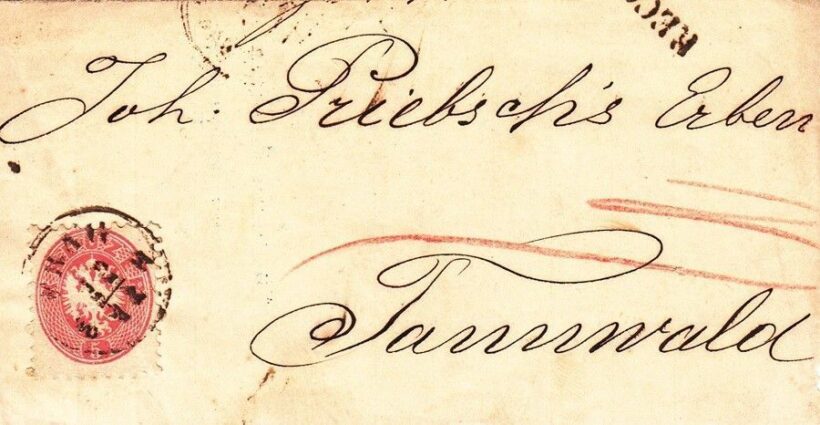 RECO
Joh. Priebsch's Erben
Tannwald